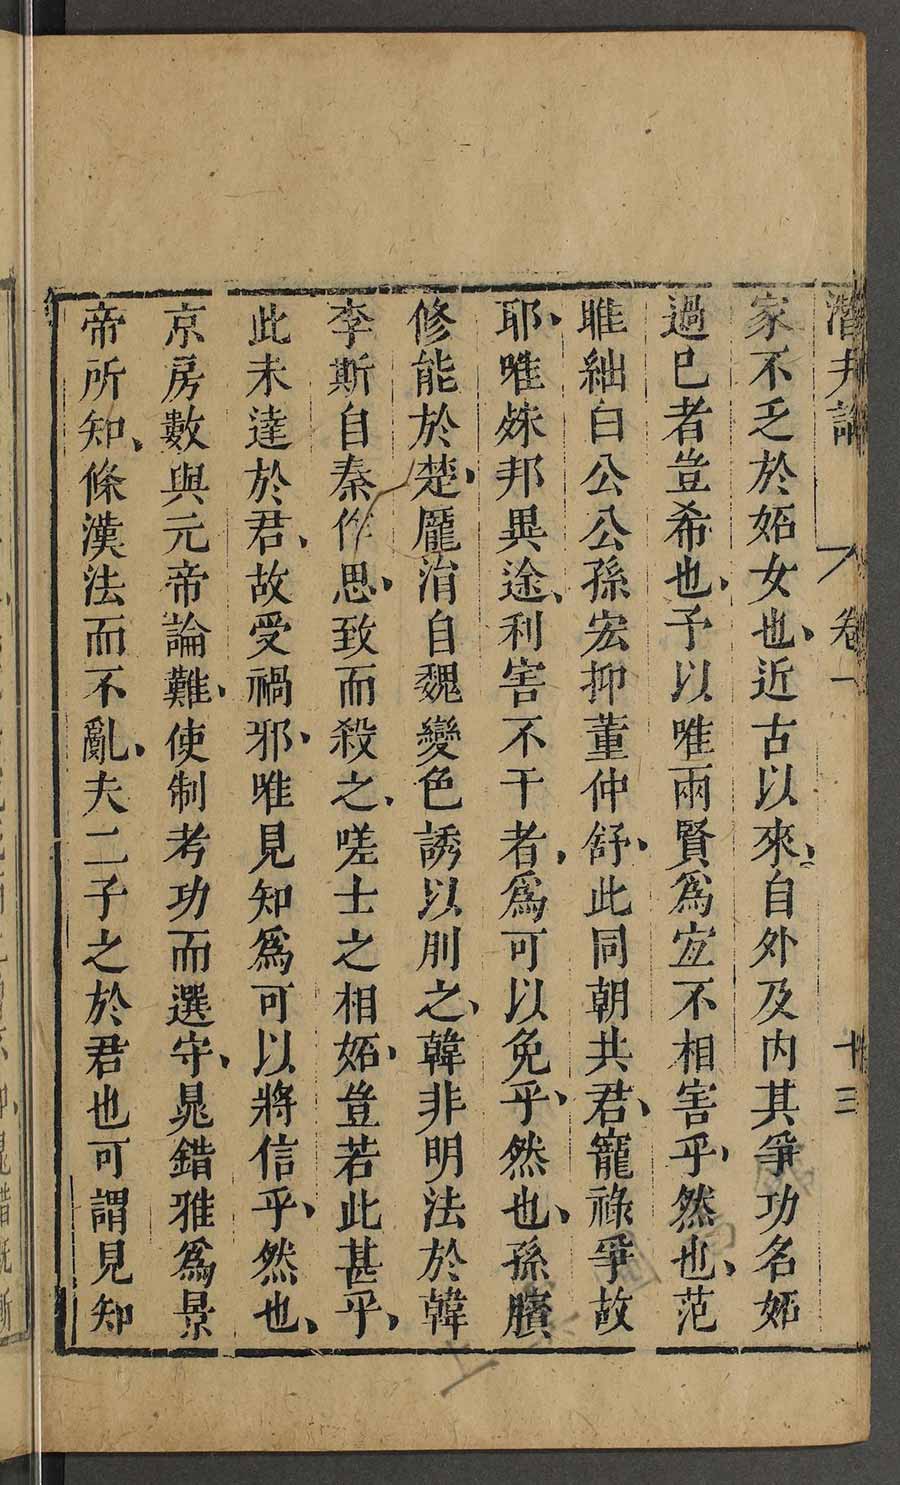 潛夫論 卷一 十三
家不乏於妬女也近古以來自外及内其爭功名妬
過已者豈希也予以唯兩賢爲宜不相害乎然也范
雎絀白公公孫宏抑董仲舒此同朝共君寵祿爭故
耶唯殊邦異途利害不干者爲可以免乎然也孫臏
修能於楚龐涓自魏變色誘以刖之韓非明法於韓
李斯自秦作思致而殺之嗟士之相妬豈若此甚乎
此未達於君故受禍邪唯見知爲可以將信乎然也
京房數與元帝論難使制考功而選守晁錯雅爲景
帝所知條漢法而不亂夫二子之於君也可謂見知